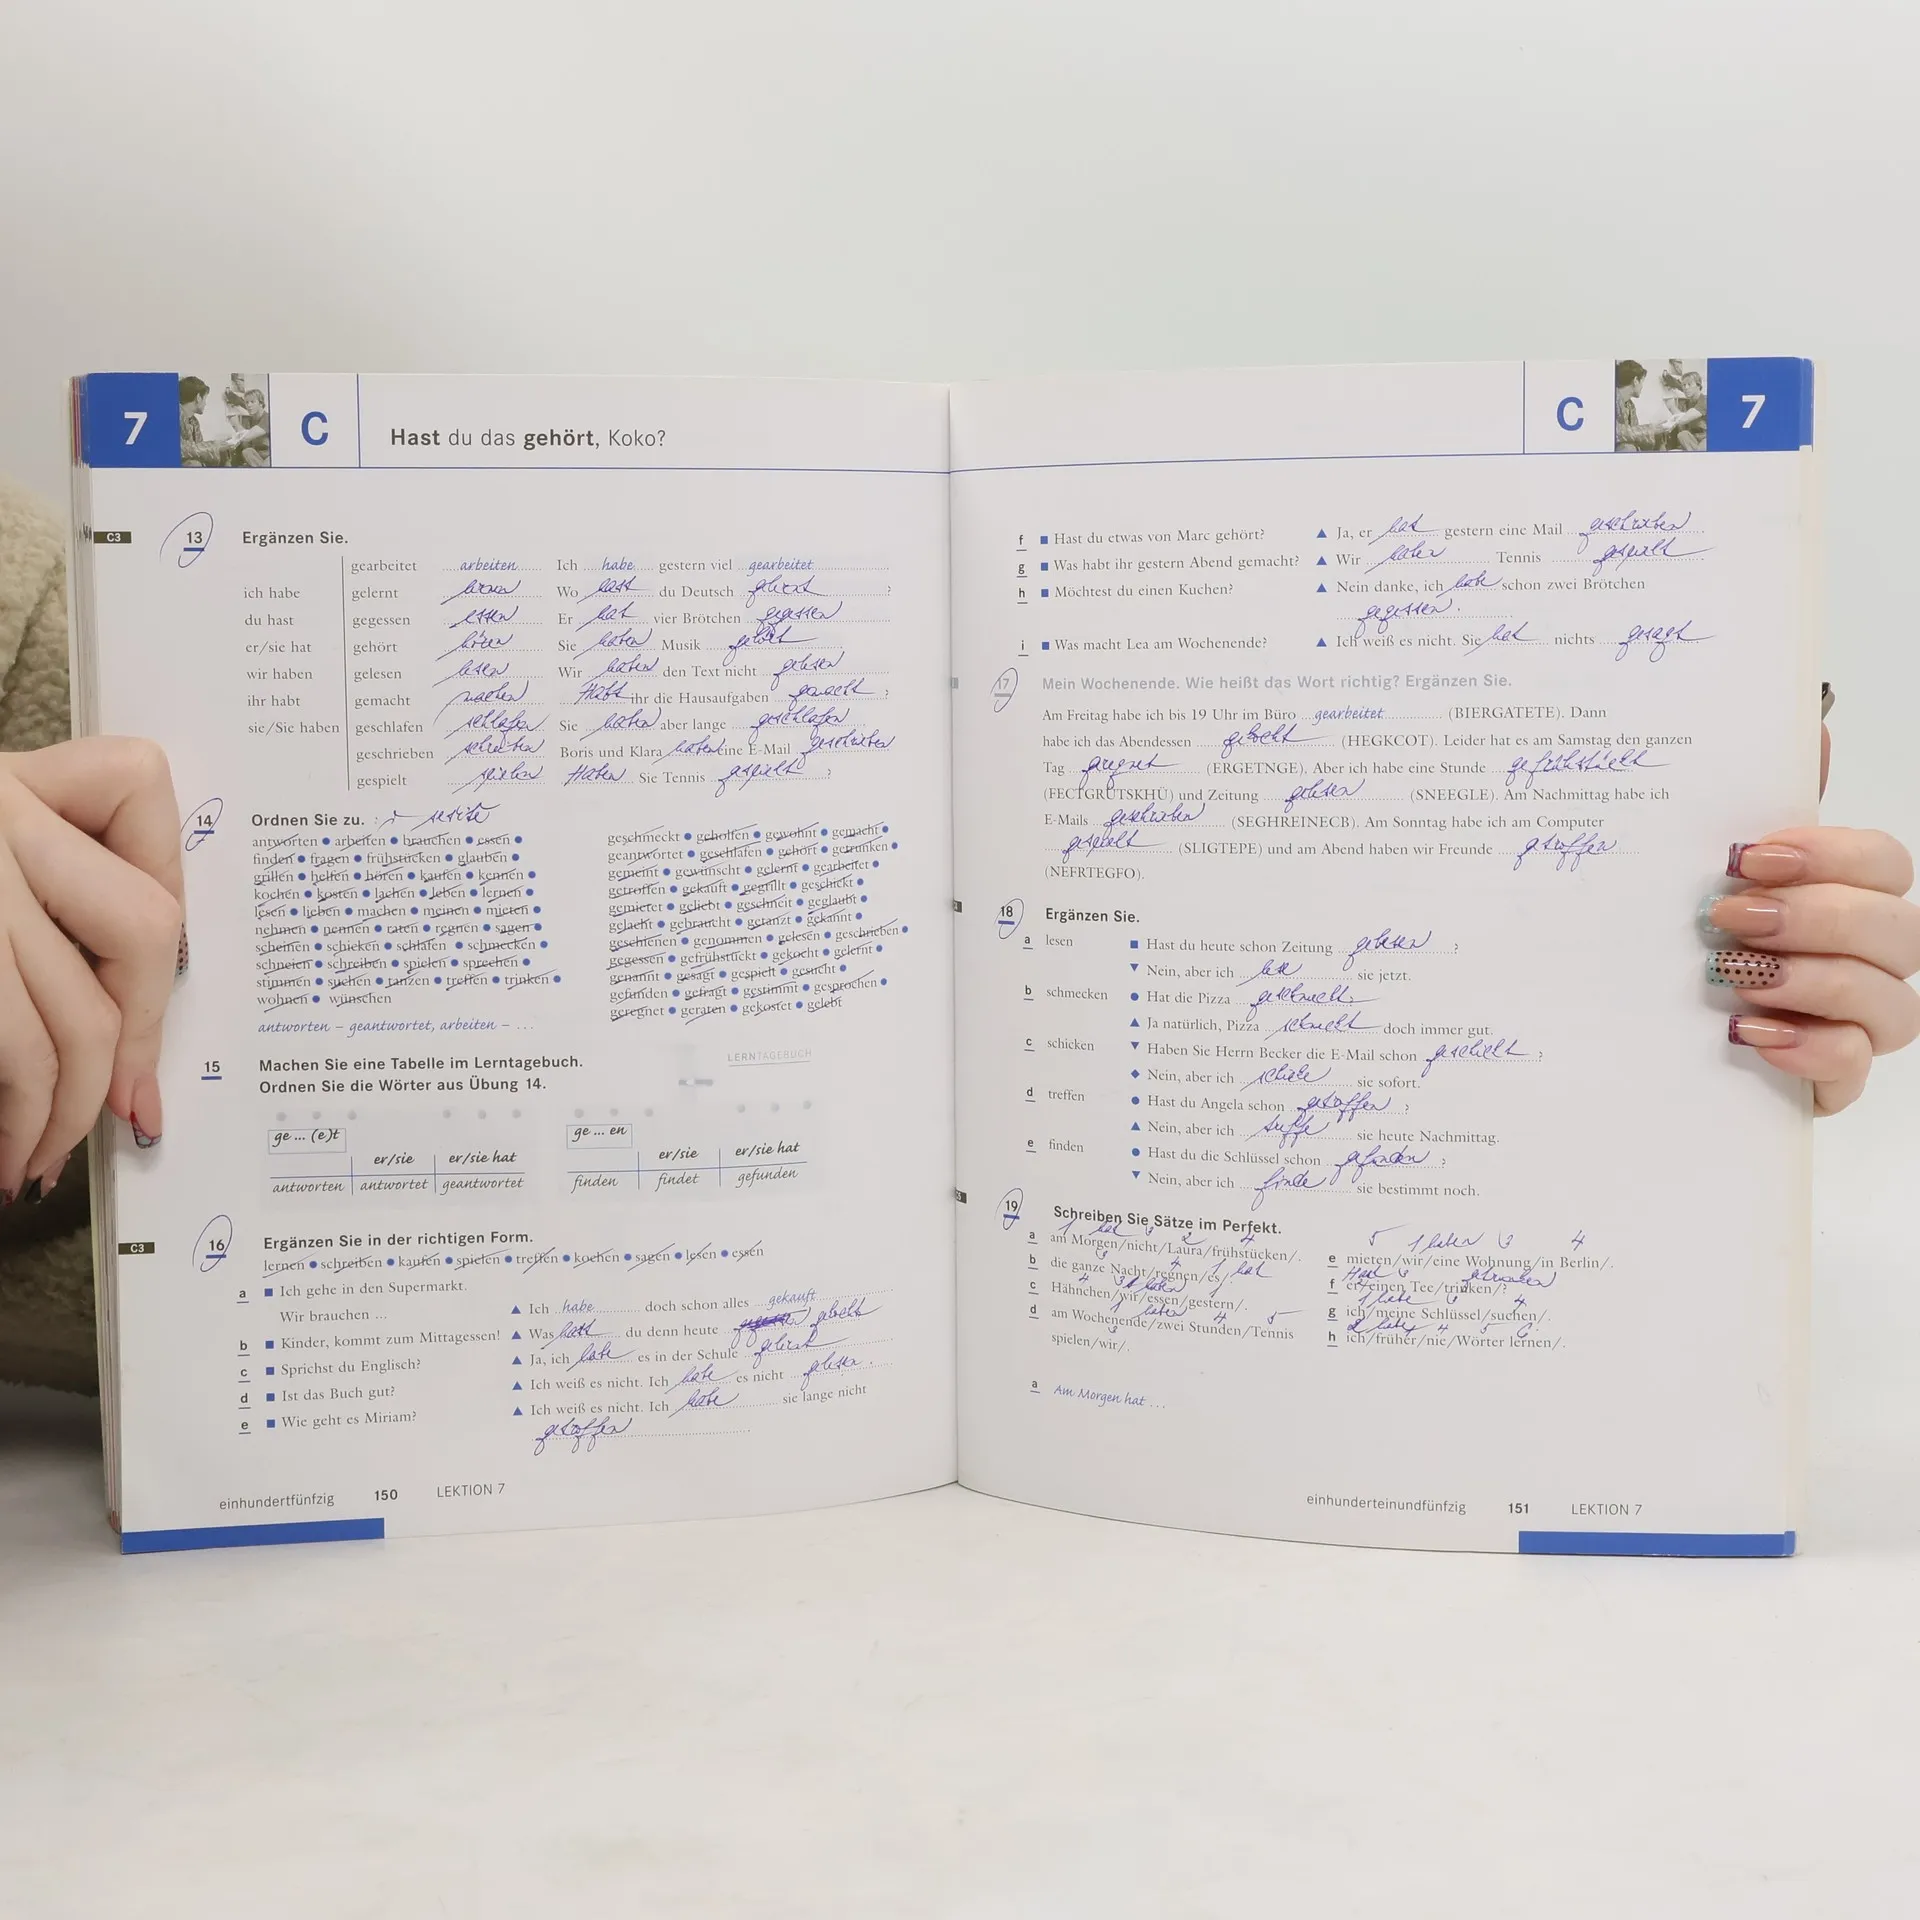 7 C Hast du das gehört, Koko?
C3 13 Ergänzen Sie.
gearbeitet arbeiten Ich habe gestern viel gearbeitet
ich habe gelernt lernen Wo hast du Deutsch gelernt ?
du hast gegessen essen Er hat vier Brötchen gegessen
er/sie hat gehört hören Sie haben Musik gehört
wir haben gelesen lesen Wir haben den Text nicht gelesen
ihr habt gemacht machen Habt ihr die Hausaufgaben gemacht ?
sie/Sie haben geschlafen schlafen Sie haben aber lange geschlafen
geschrieben schreiben Boris und Klara haben eine E-Mail geschrieben
gespielt spielen Haben Sie Tennis gespielt ?
14 Ordnen Sie zu.
antworten • arbeiten • brauchen • essen •
finden • fragen • frühstücken • glauben •
grillen • helfen • hören • kaufen • kennen •
kochen • kosten • lachen • leben • lernen •
lesen • lieben • machen • meinen • mieten •
nehmen • nennen • raten • regnen • sagen •
scheinen • schicken • schlafen • schmecken •
schneien • schreiben • spielen • sprechen •
stimmen • suchen • tanzen • treffen • trinken •
wohnen • wünschen
geschmeckt • geholfen • gewohnt • gemacht •
geantwortet • geschlafen • gehört • getrunken •
gemeint • gewünscht • gelernt • gearbeitet •
getroffen • gekauft • gegrillt • geschickt •
gemietet • geliebt • geschneit • geglaubt •
gelacht • gebraucht • getanzt • gekannt •
geschienen • genommen • gelesen • geschrieben •
gegessen • gefrühstückt • gekocht • gelernt •
genannt • gesagt • gespielt • gesucht •
gefunden • gefragt • gestimmt • gesprochen •
geregnet • geraten • gekostet • gelebt
antworten – geantwortet, arbeiten – ...
15 Machen Sie eine Tabelle im Lerntagebuch.
Ordnen Sie die Wörter aus Übung 14.
LERNTAGEBUCH
ge ... (e)t
er/sie er/sie hat
antworten antwortet geantwortet
ge ... en
er/sie er/sie hat
finden findet gefunden
C3 16 Ergänzen Sie in der richtigen Form.
lernen • schreiben • kaufen • spielen • treffen • kochen • sagen • lesen • essen
a Ich gehe in den Supermarkt.
Wir brauchen ... Ich habe doch schon alles gekauft
b Kinder, kommt zum Mittagessen! Was hast du denn heute gekocht
c Sprichst du Englisch? Ja, ich habe es in der Schule gelernt
d Ist das Buch gut? Ich weiß es nicht. Ich habe es nicht gelesen.
e Wie geht es Miriam? Ich weiß es nicht. Ich habe sie lange nicht
getroffen
einhundertfünfzig 150 LEKTION 7
C 7
f Hast du etwas von Marc gehört? Ja, er hat gestern eine Mail geschrieben
g Was habt ihr gestern Abend gemacht? Wir haben Tennis gespielt
h Möchtest du einen Kuchen? Nein danke, ich habe schon zwei Brötchen
gegessen.
i Was macht Lea am Wochenende? Ich weiß es nicht. Sie hat nichts gesagt
17 Mein Wochenende. Wie heißt das Wort richtig? Ergänzen Sie.
Am Freitag habe ich bis 19 Uhr im Büro gearbeitet (BIERGATETE). Dann
habe ich das Abendessen gekocht (HEGKCOT). Leider hat es am Samstag den ganzen
Tag geregnet (ERGETNGE). Aber ich habe eine Stunde gefrühstückt
(FECTGRUTSKHÜ) und Zeitung gelesen (SNEEGLE). Am Nachmittag habe ich
E-Mails geschrieben (SEGHREINECB). Am Sonntag habe ich am Computer
gespielt (SLIGTEPE) und am Abend haben wir Freunde getroffen
(NEFRTEGFO).
18 Ergänzen Sie.
a lesen Hast du heute schon Zeitung gelesen ?
Nein, aber ich lese sie jetzt.
b schmecken Hat die Pizza geschmeckt?
Ja natürlich, Pizza schmeckt doch immer gut.
c schicken Haben Sie Herrn Becker die E-Mail schon geschickt ?
Nein, aber ich schicke sie sofort.
d treffen Hast du Angela schon getroffen ?
Nein, aber ich treffe sie heute Nachmittag.
e finden Hast du die Schlüssel schon gefunden ?
Nein, aber ich finde sie bestimmt noch.
19 Schreiben Sie Sätze im Perfekt.
1 hat 3 2 4
a am Morgen/nicht/Laura/frühstücken/.
3 4 1 hat
b die ganze Nacht/regnen/es/.
c Hähnchen/wir/essen/gestern/.
1 haben 4 5
d am Wochenende/zwei Stunden/Tennis
spielen/wir/.
5 1 haben 3 4
e mieten/wir/eine Wohnung/in Berlin/.
Hat getrunken
f er/einen Tee/trinken/?
1 habe 4
g ich/meine Schlüssel/suchen/.
2 habe 4 5 6
h ich/früher/nie/Wörter lernen/.
a Am Morgen hat ...
einhunderteinundfünfzig 151 LEKTION 7